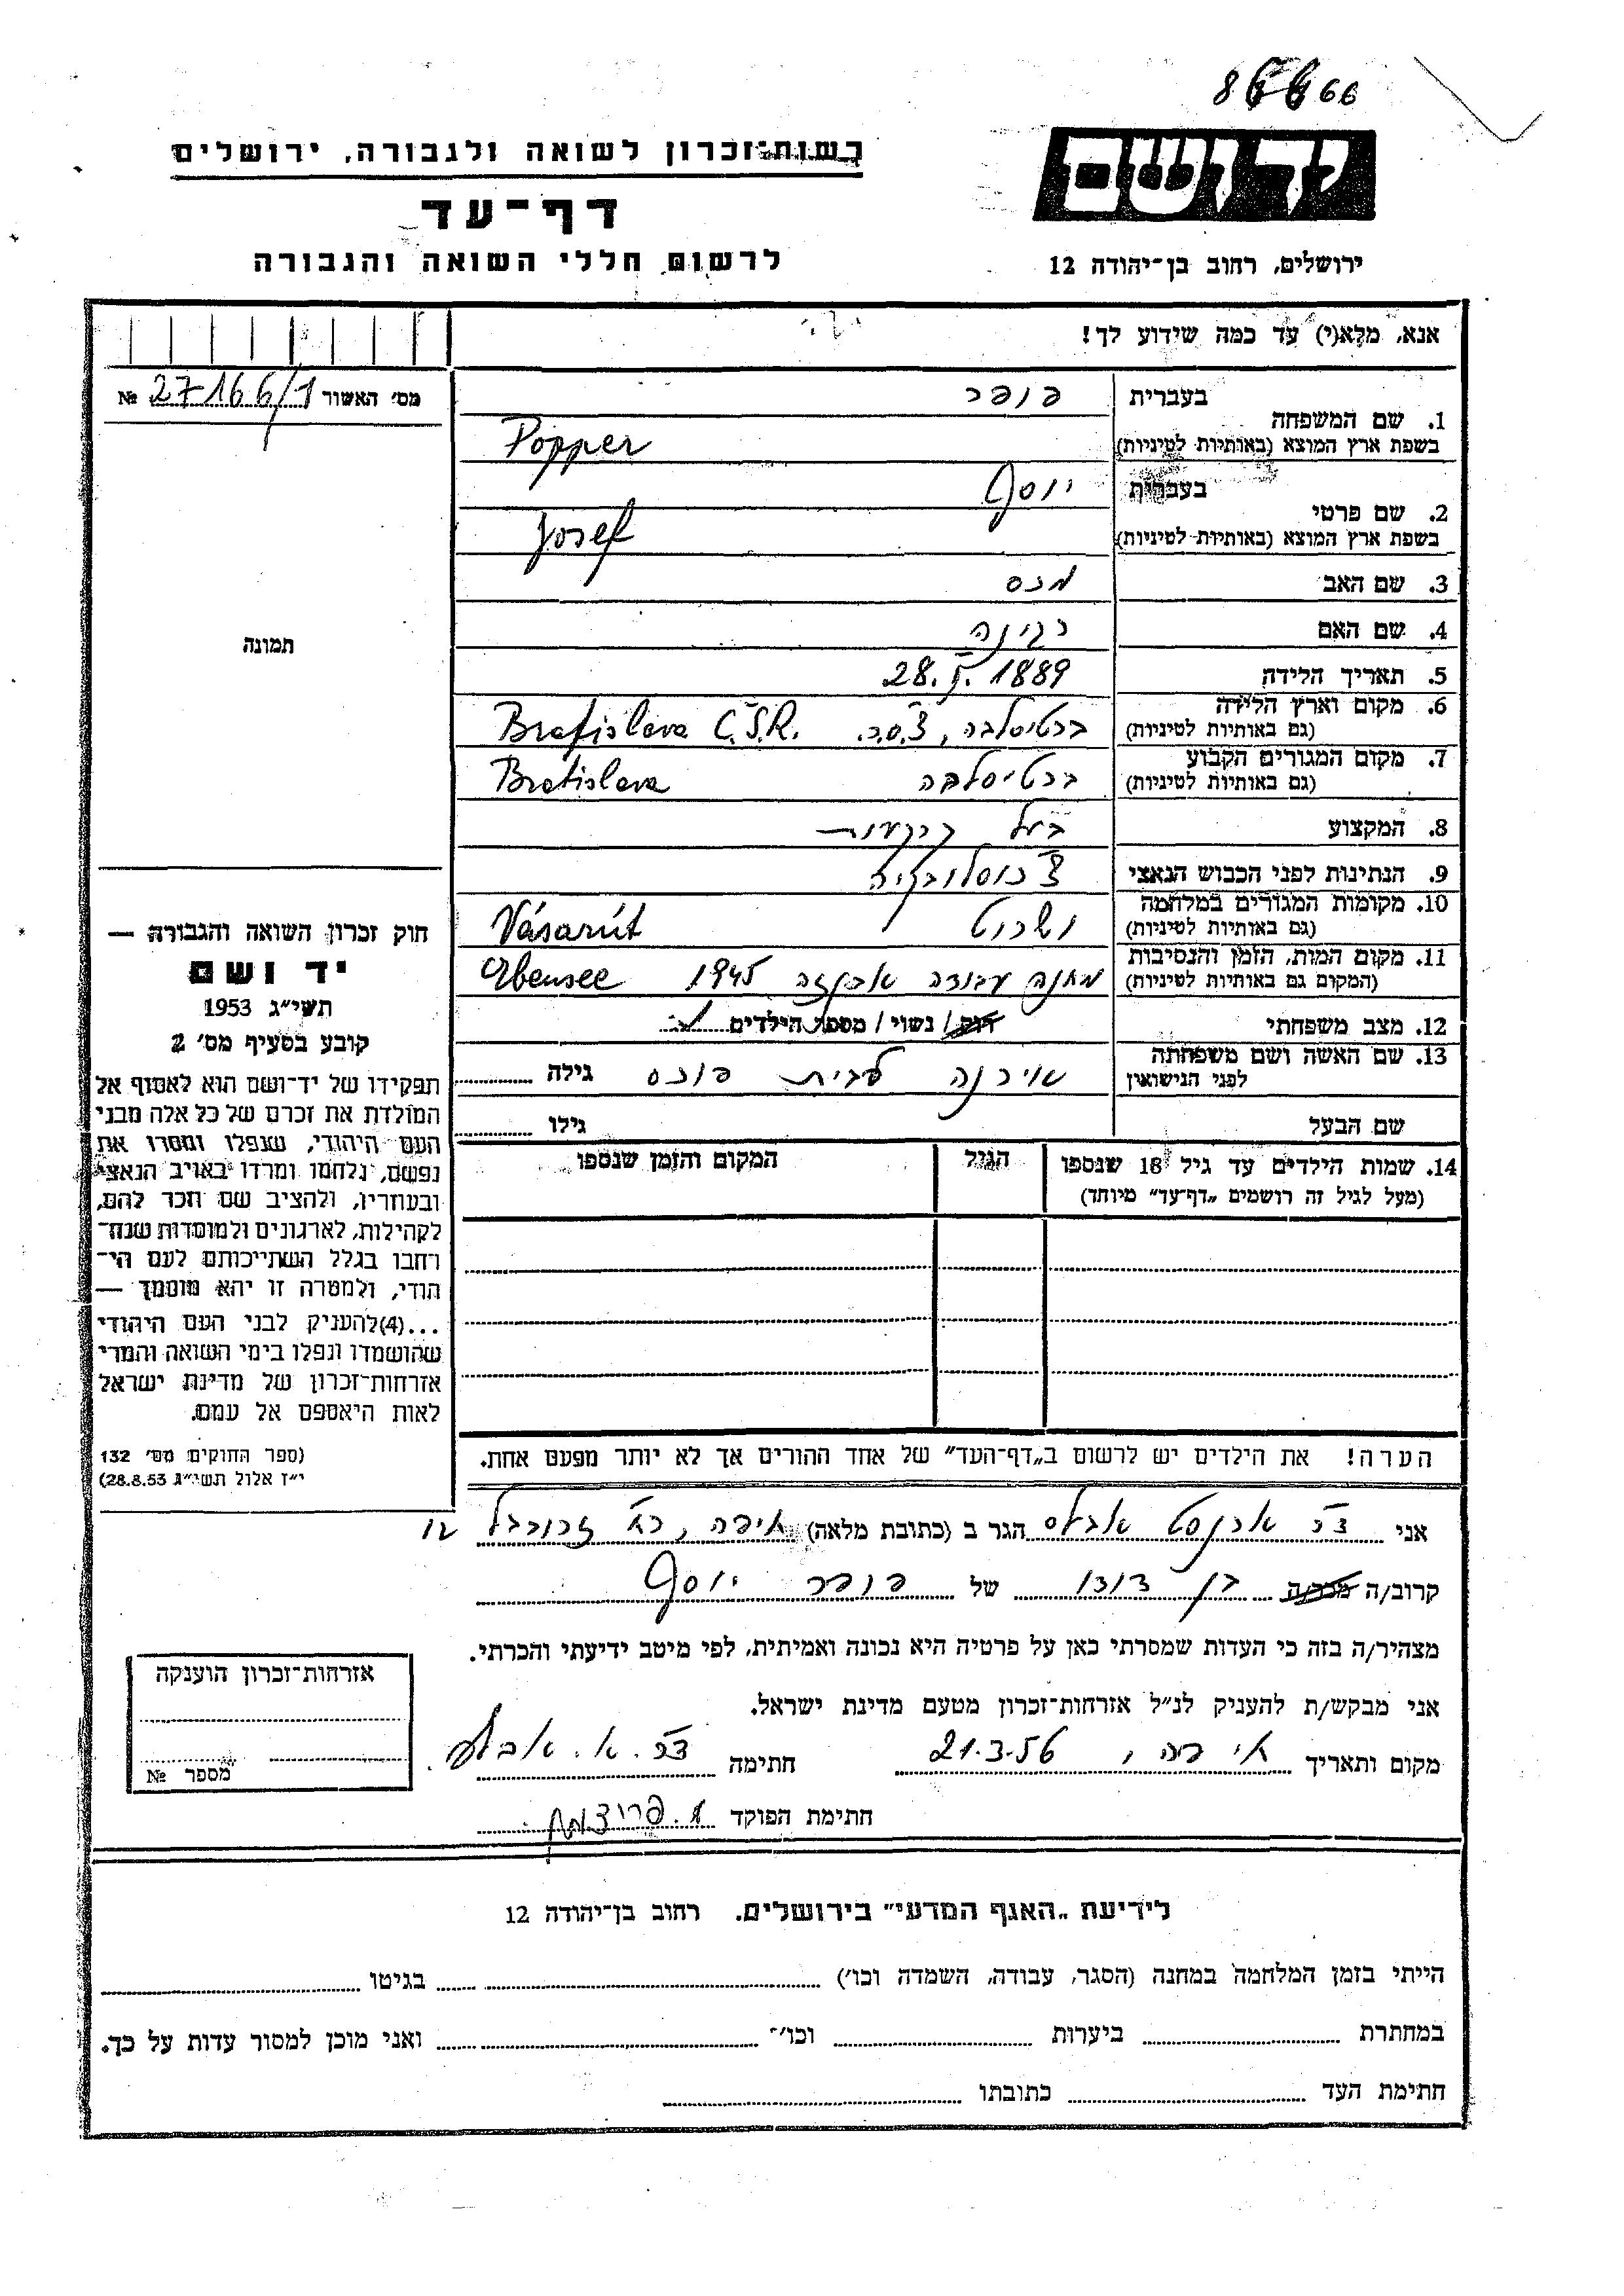 יד ושם
ירושלים, רחוב בן־יהודה 12
רשות־זכרון לשואה ולגבורה, ירושלים
דף־עד
לרשום חללי השואה והגבורה
אנא, מלא(י) עד כמה שידוע לך!
מס׳ האשור 27166/1 №
תמונה
1. שם המשפחה בעברית פופר
בשפת ארץ המוצא (באותיות לטיניות) Popper
2. שם פרטי בעברית יוסף
בשפת ארץ המוצא (באותיות לטיניות) Josef
3. שם האב
4. שם האם רגינה
5. תאריך הלידה 28.V.1889
6. מקום וארץ הלידה ברטיסלבה, צ׳.ס.ר. Bratislava Č.S.R.
(גם באותיות לטיניות)
7. מקום המגורים הקבוע ברטיסלבה Bratislava
(גם באותיות לטיניות)
8. המקצוע בעל קרקעות
9. הנתינות לפני הכבוש הנאצי צ׳כוסלובקיה
10. מקומות המגורים במלחמה ושרוט Vásarút
(גם באותיות לטיניות)
11. מקום המות, הזמן והנסיבות מחנה עבודה אבנזה 1945 Ebensee
(המקום גם באותיות לטיניות)
12. מצב משפחתי רוק / נשוי / מספר הילדים
13. שם האשה ושם משפחתה אירנה לבית פוכס גילה
לפני הנישואין
שם הבעל גילו
14. שמות הילדים עד גיל 18 שנספו הגיל המקום והזמן שנספו
(מעל לגיל זה רושמים „דף־עד״ מיוחד)
הערה! את הילדים יש לרשום ב„דף־העד״ של אחד ההורים אך לא יותר מפעם אחת.
חוק זכרון השואה והגבורה —
יד ושם
תשי״ג 1953
קובע בסעיף מס׳ 2
תפקידו של יד־ושם הוא לאסוף אל
המולדת את זכרם של כל אלה מבני
העם היהודי, שנפלו ומסרו את
נפשם, נלחמו ומרדו באויב הנאצי
ובעוזריו, ולהציב שם וזכר להם,
לקהילות, לארגונים ולמוסדות שנח־
רבו בגלל השתייכותם לעם הי־
הודי, ולמטרה זו יהא מוסמך —
...(4) להעניק לבני העם היהודי
שהושמדו ונפלו בימי השואה והמרי
אזרחות־זכרון של מדינת ישראל
לאות היאספם אל עמם.
(ספר החוקים מס׳ 132
י״ז אלול תשי״ג 28.8.53)
אני ד״ר ארנסט אבלס הגר ב (כתובת מלאה) חיפה, רח׳ זרובבל
קרוב/ה מכר/ה בן דודו של פופר יוסף
מצהיר/ה בזה כי העדות שמסרתי כאן על פרטיה היא נכונה ואמיתית, לפי מיטב ידיעתי והכרתי.
אני מבקש/ת להעניק לנ״ל אזרחות־זכרון מטעם מדינת ישראל.
מקום ותאריך חיפה, 21.3.56 חתימה ד״ר א. אבלס
חתימת הפוקד
אזרחות־זכרון הוענקה
מספר №
לידיעת „האגף המדעי״ בירושלים. רחוב בן־יהודה 12
הייתי בזמן המלחמה במחנה (הסגר, עבודה, השמדה וכו׳) בגיטו
במחתרת ביערות וכו׳־ ואני מוכן למסור עדות על כך.
חתימת העד כתובתו